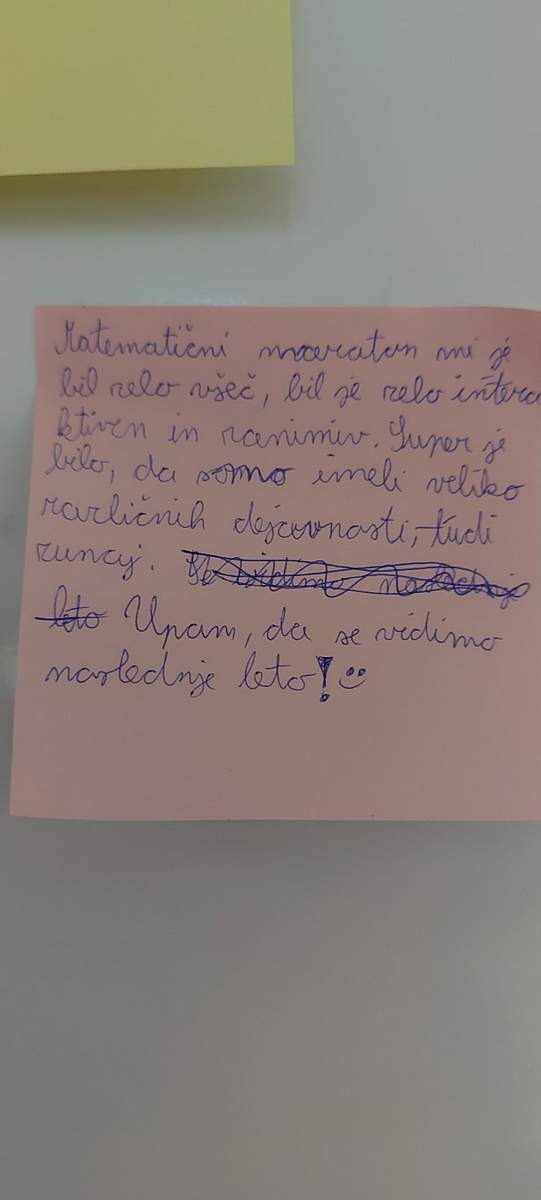 Matematični maraton mi je
bil zelo všeč, bil je zelo intera
ktiven in zanimiv. Super je
bilo, da smo imeli veliko
različnih dejavnosti, tudi
zunaj.
leto Upam, da se vidimo
naslednje leto! :)